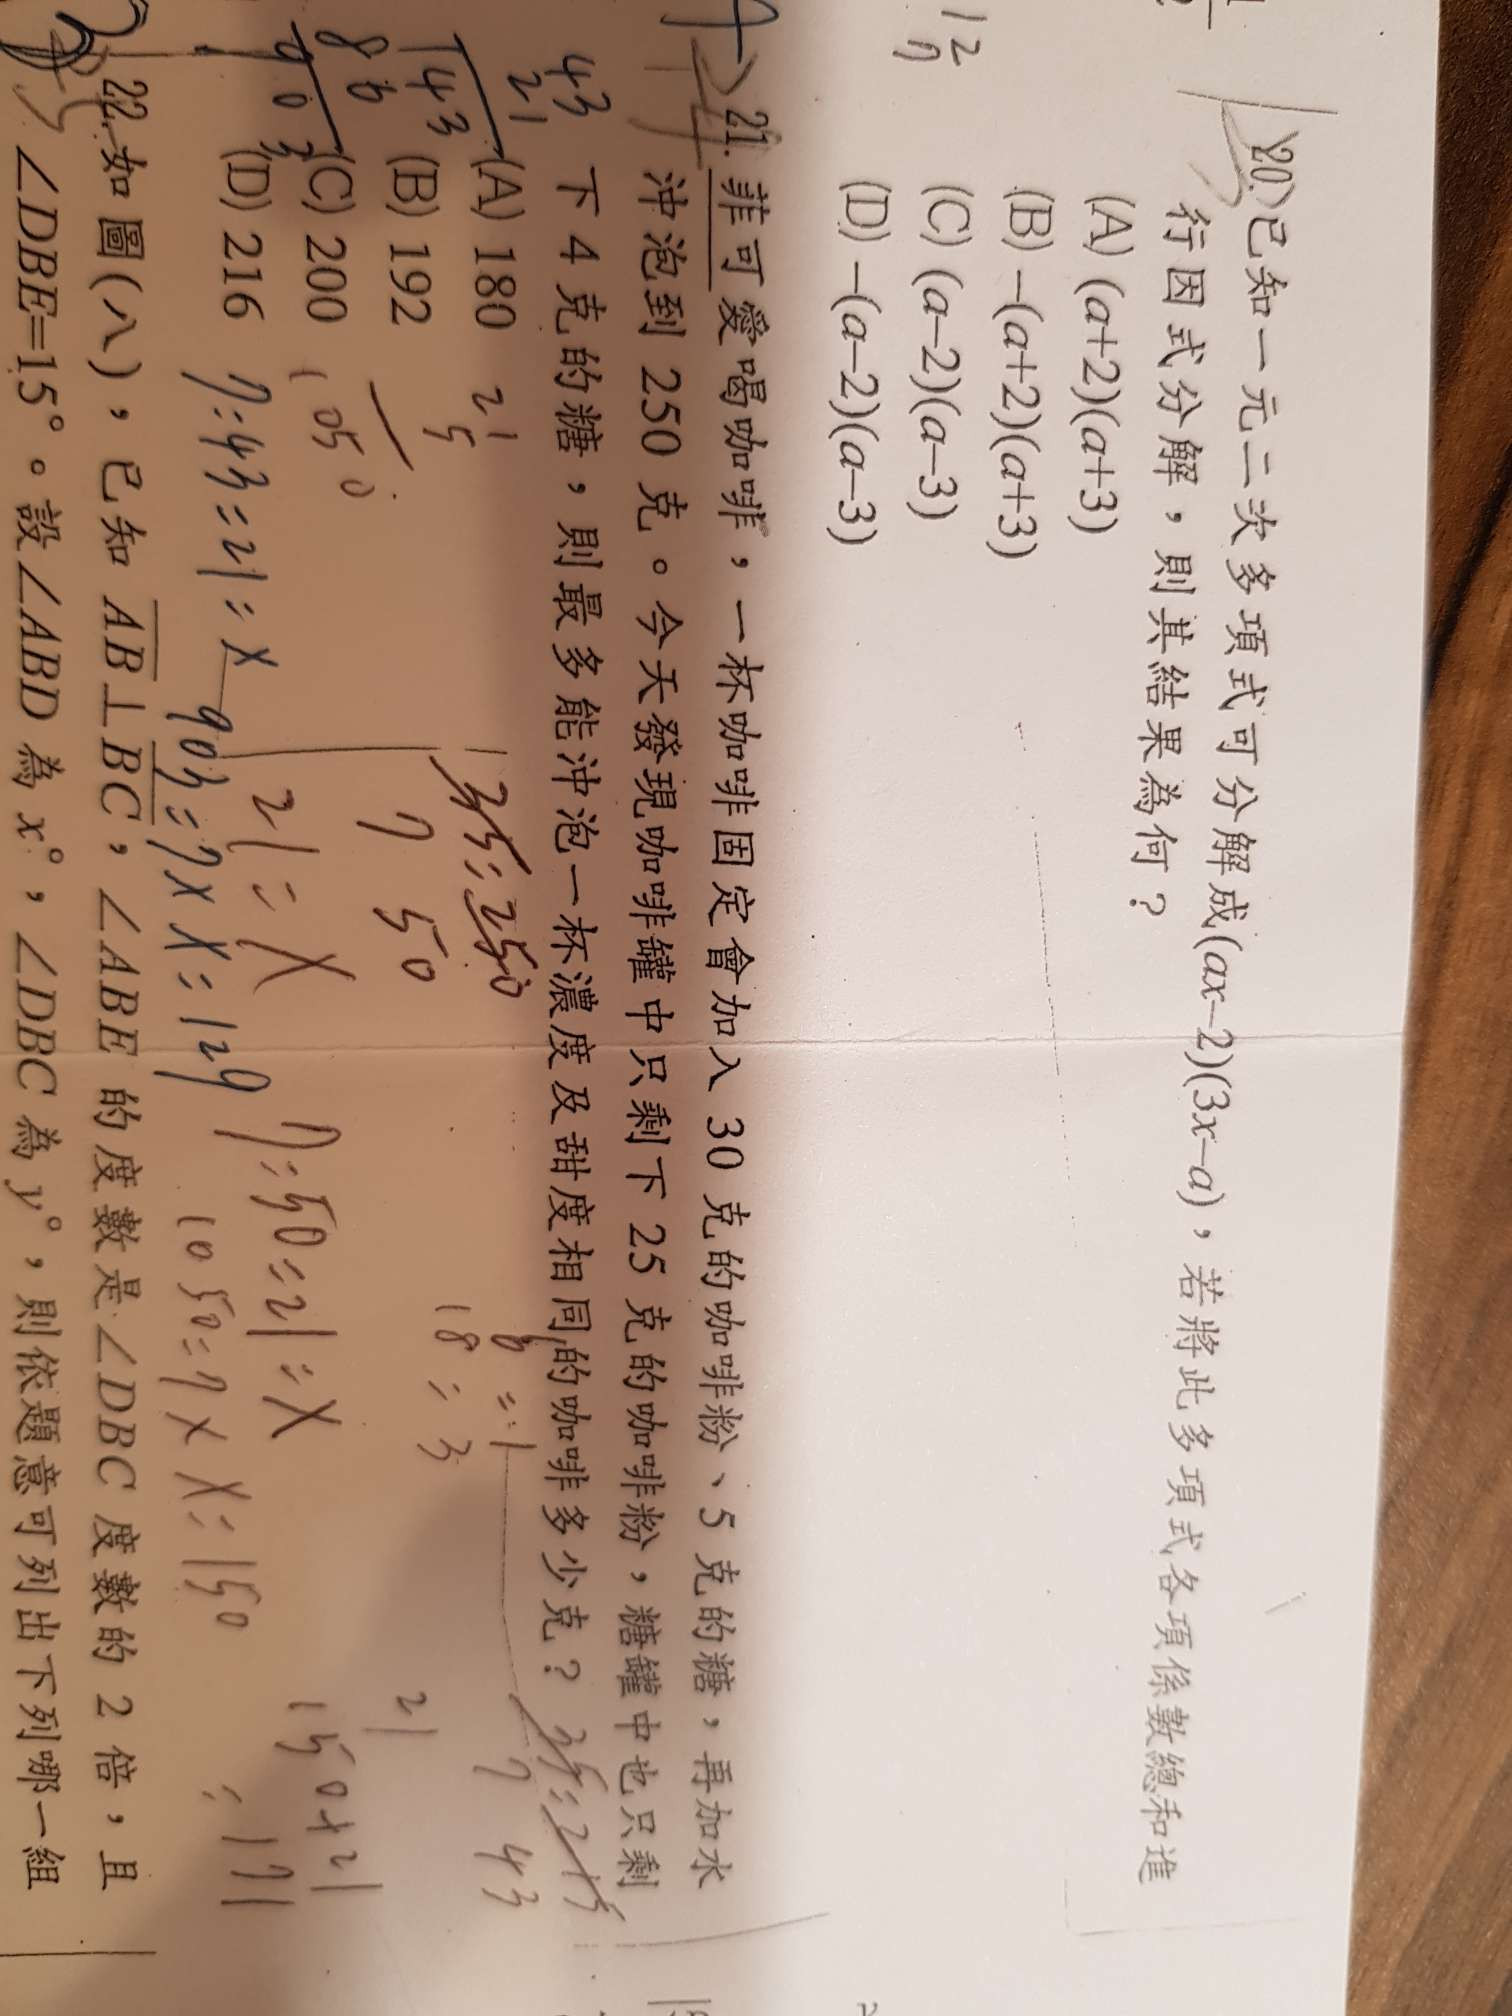 20. 已知一元二次多項式可分解成(ax−2)(3x−a)，若將此多項式各項係數總和進
行因式分解，則其結果為何？
(A) (a+2)(a+3)
(B) −(a+2)(a+3)
(C) (a−2)(a−3)
(D) −(a−2)(a−3)
12
7
21. 菲可愛喝咖啡，一杯咖啡固定會加入 30 克的咖啡粉、5 克的糖，再加水
沖泡到 250 克。今天發現咖啡罐中只剩下 25 克的咖啡粉，糖罐中也只剩
下 4 克的糖，則最多能沖泡一杯濃度及甜度相同的咖啡多少克？
(A) 180
(B) 192
(C) 200
(D) 216
43
21
43
86
903
21
5
105
35:250
7 50
6:1
18:3
35:215
7 43
21
150+21
=171
21:X
7:50=21:X
1050=7X X=150
7:43=21:X
903=7X X=129
22. 如圖(八)，已知 AB⊥BC，∠ABE 的度數是∠DBC 度數的 2 倍，且
∠DBE=15°。設∠ABD 為 x°，∠DBC 為 y°，則依題意可列出下列哪一組